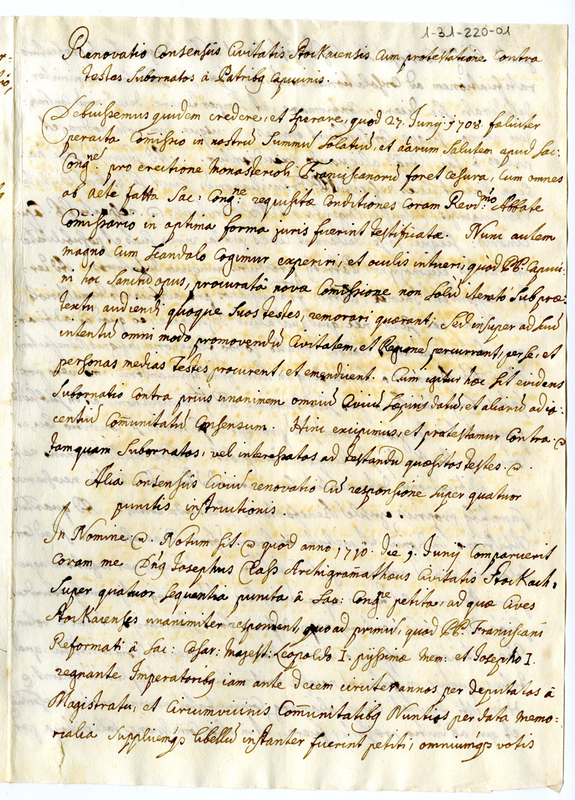 1-31-220-01
Renovatio Consensûs Civitatis Stockaiensis cum protestatione Contra
testes Subornatos â Patribq Capucinis.
Debuissemus quidem credere, et sperare, quod 27. Junij 1708 fæliciter
peracta Com̃issio in nostrũ Summũ Solatiũ, et aĩarum Salutem apud Sac:
Congne. pro erectione Monasterioli Franciscanorũ foret Cesura, cum omnes
ab Aete fatta Sac: Congne: requisitæ Conditiones Coram Revdmo Abbate
Comissario in optima forma juris fuerint testificatæ. Nunc autem
magno cum Scandalo Cogimur experiri, et oculis intueri, quod PP. Capuci-
ni hoc Sanctũ opus, procuratâ novâ Com̃issione non Solũ iteratò Sub præ-
textu audiendi quoque Suos testes, remorari quærant, Sed insuper ad Suũ
intentũ omni modo promovendũ Civitatem, et Regionẽ percurrant, per se, et
personas medias Testes procurent, et emendicent. Cum igitur hoc Sit evidens
Subornatio Contra prius unanimem omniũ Civiũ Sæpius datũ, et aliarũ adia-
centiũ Comunitatũ Consensum. Hinc excipimus, et protestamur Contra
tamquam Subornatos, vel interessatos ad testandũ quæsitos testes.
Alia Consensûs Civiũ renovatio Cũ responsione Super quatuor
punctis instructionis.
In Nomine. Notum Sit. quod anno 1710. die 9. Junij Comparuerit
Coram me Dñs Josephus Archigram̃atheus Civitatis Stockach.
Super quatuor Sequentia puncta â Sac: Congne petita, ad quæ Cives
Stockaienses unanimiter respondent, quo ad primũ, quòd PP. Franciscani
Reformati â Sac: Cæsar: Majest: Leopoldo I. pijssimæ Mem: et Josepho I.
regnante Imperatoribq iam ante decem circiter annos per deputatos â
Magistratu, et Circumvicinis Com̃unitatibq Nuntios per data memo-
rialia Supplicumqs libellũ instanter fuerint petiti, omniumqs votis